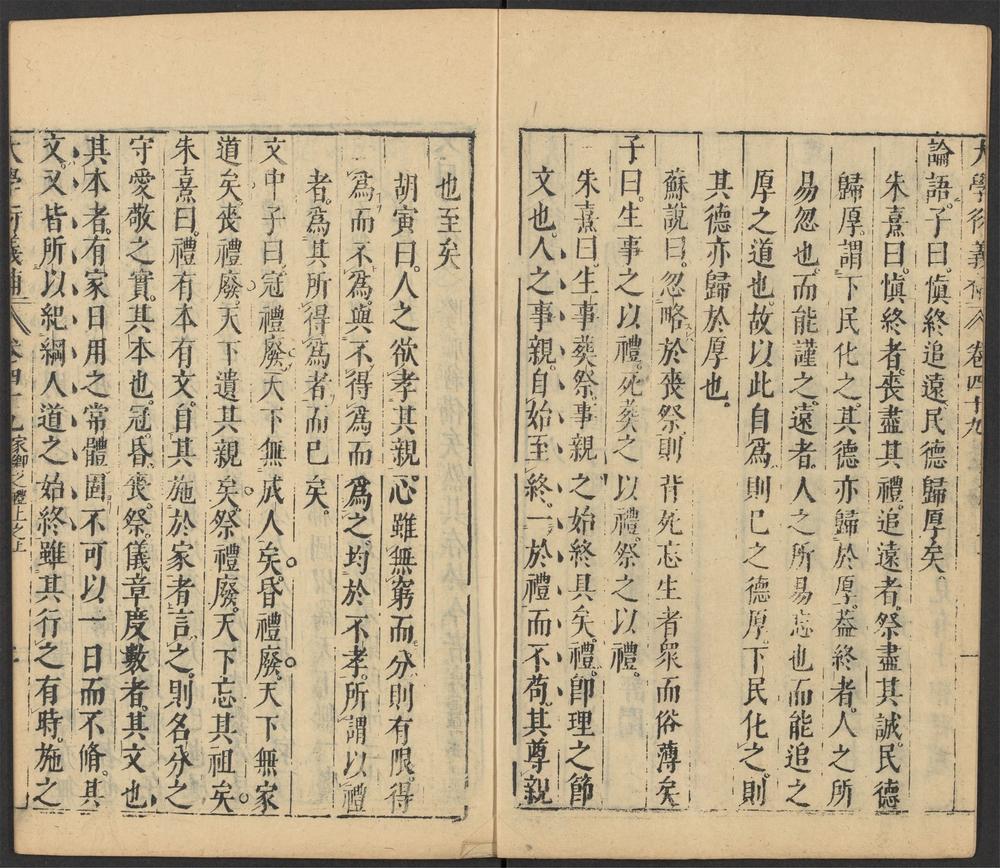 大學衍義補 卷四十九
論語子曰。愼終追遠。民德歸厚矣。
朱熹曰。愼終者。喪盡其禮。追遠者。祭盡其誠。民德
歸厚。謂下民化之。其德亦歸於厚。葢終者。人之所
易忽也。而能謹之。遠者。人之所易忘也。而能追之
厚之道也。故以此自爲。則已之德厚。下民化之。則
其德亦歸於厚也。
蘇說曰。忽略於喪祭。則背死忘生者衆而俗薄矣
子曰。生事之以禮。死葬之以禮。祭之以禮。
朱熹曰。生事葬祭。事親之始終具矣。禮。卽理之節
文也。人之事親。自始至終。一於禮而不苟。其尊親
也至矣
胡寅曰。人之欲孝其親。心雖無窮。而分則有限。得
爲而不爲。與不得爲而爲之。均於不孝。所謂以禮
者。爲其所得爲者而已矣。
文中子曰。冠禮廢。天下無成人矣。昏禮廢。天下無家
道矣。喪禮廢。天下遺其親矣。祭禮廢。天下忘其祖矣。
朱熹曰。禮有本有文。自其施於家者言之。則名分之
守。愛敬之實。其本也。冠。昏。喪。祭。儀章度數者。其文也
其本者。有家日用之常體。固不可以一日而不脩。其
文。又皆所以紀綱人道之始終。雖其行之有時。施之
大學衍義補 卷四十九 家鄉之禮上之上